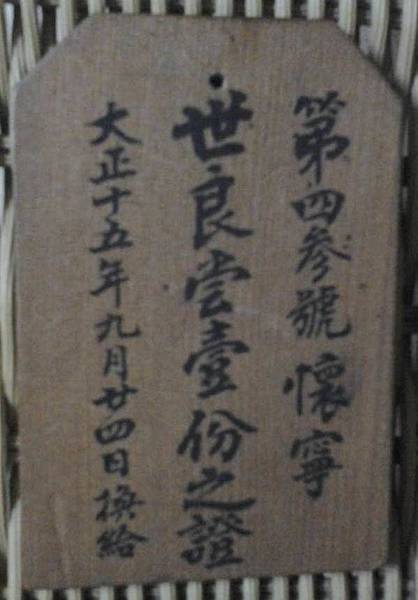 第四参號懷寧
世良嘗壹份之證
大正十五年九月廿四日換給